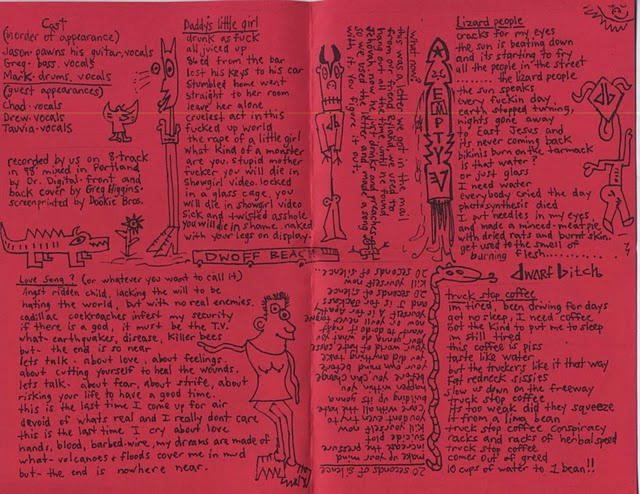 Cast
(in order of appearance)
Jason-pawns his guitar, vocals
Greg-bass, vocals
Mark-drums, vocals
(guest appearances)
Chad-vocals
Drew-vocals
Tawia-vocals
recorded by us on 8-track
in 98' mixed in Portland
by Dr. Digital. front and
back cover by Greg Higgins.
screenprinted by Dookie Bros.
Daddy's little girl
drunk as fuck
all juiced up
86ed from the bar
lost his keys to his car
Stumbled home went
straight to her room
leave her alone
cruelest act in this
fucked up world
the rape of a little girl
what kind of a monster
are you. stupid mother
fucker you will die in
showgirl video. locked
in a glass cage, you
will die in showgirl video
Sick and twisted asshole
you will die in shame. naked
with your legs on display.
what now?
this was a letter we got in the mail
from our friend Roland, he used to
hang out all the time until he found
jehovah, now he just drinks and preaches
so we used the letter and made a song
with it. Go figure it out.
EMPTY
Lizard people
cracks for my eyes
the sun is beating down
and its starting to fry
all the people in the street
the lizard people
the sun speaks
every fuckin day
earth stopped turning,
nights gone away
to East Jesus and
its never coming back
bikini's burn on the tarmack
is that water?
or just glass
I need water
everybody cried the day
photosynthesis died
I put needles in my eyes
and made a minced-meat pie
with dried rats and burnt skin.
get used to the smell of
burning flesh
DWOFF BEACH
db
Love Song? (or whatever you want to call it)
Angst ridden child, lacking the will to be
hating the world, but with no real enemies.
cadillac cockroaches infest my security
if there is a god, it must be the T.V.
what-earthquakes, disease, killer bees
but- the end is so near
lets talk- about love, about feelings.
about cutting yourself to heal the wounds.
lets talk- about fear, about strife, about
risking your life to have a good time.
this is the last time I come up for air
devoid of whats real and I really dont care
this is the last time I cry about love
hands, blood, barbed-wire, my dreams are made of
what-volcanoes + floods cover me in mud
but- the end is nowhere near.
20 seconds of silence
make up your mind
increase the pressure
suicide pilot
kill yourself now
20 seconds of silence
kill yourself now
20 seconds of silence
dwarf bitch
truck stop coffee
im tired, been driving for days
got no sleep, I need coffee
got the kind to put me to sleep
im still tired
this coffee is piss
taste like water
but the truckers like it that way
fat redneck sissies
slow us down on the freeway
truck stop coffee
its too weak did they squeeze
it from a lima bean
truck stop coffee conspiracy
racks and racks of herbal speed
truck stop coffee
comes out of greed
10 cups of water to 1 bean!!